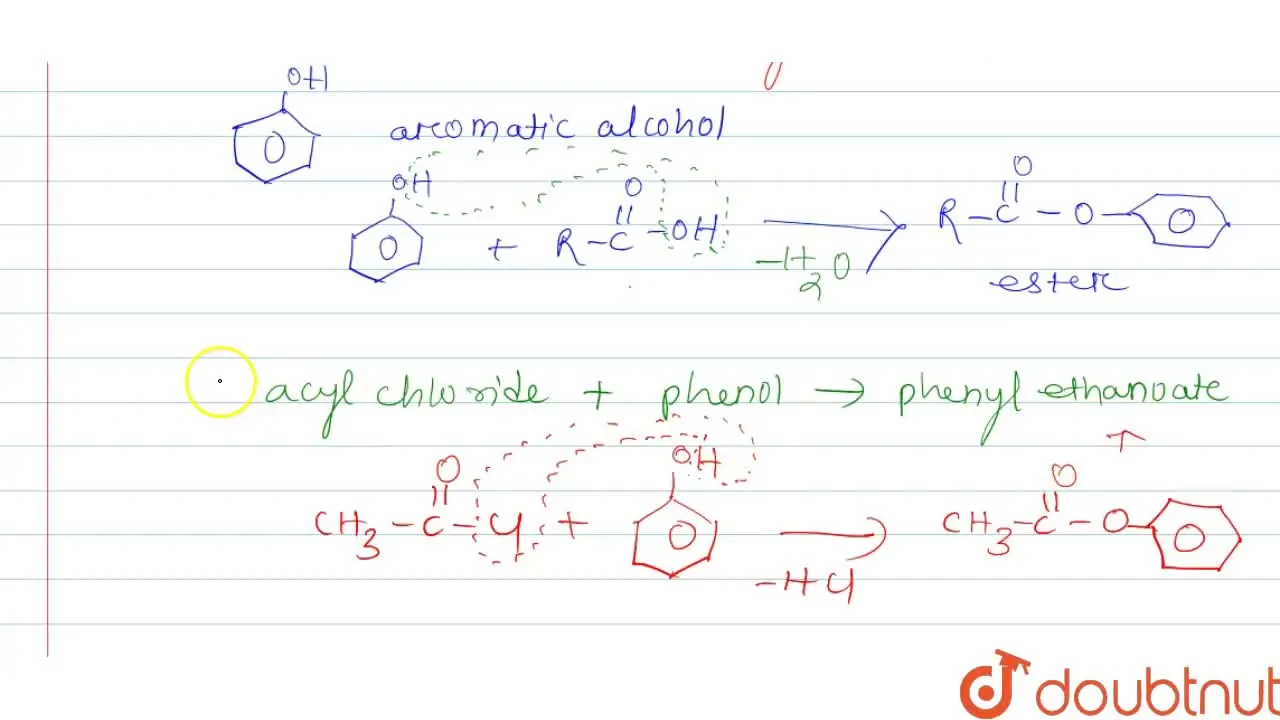 OH
aromatic alcohol
OH
O
+ R-C-OH
-H2O
O
R-C-O-
ester
acyl chloride + phenol → phenyl ethanoate
O
CH3-C-Cl +
OH
-HCl
O
CH3-C-O-
doubtnut